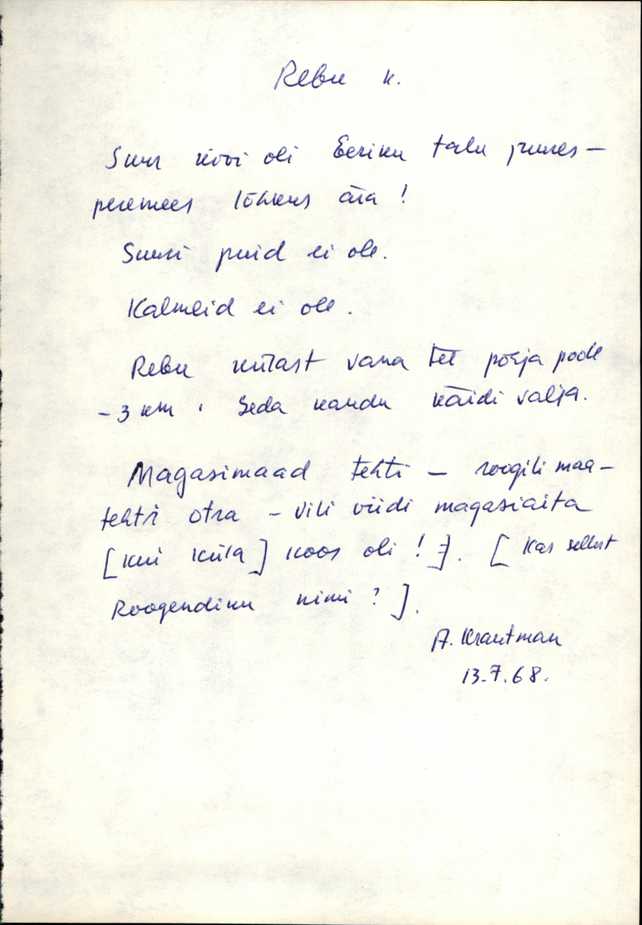 Rebu k.
Suur kivi oli Eeriku talu juures –
peremees lõhkus ära!
Suuri puid ei ole.
Kalmeid ei ole.
Rebu külast vana tee põhja poole
– 3 km. Seda kaudu käidi välja.
Magasimaad tehti – roogiti maa –
tehti otra – vili viidi magasiaita
[kui küla] koos oli!]. [Kas sellest
Roogendiku nimi?].
A. Krautman
13.7.68.